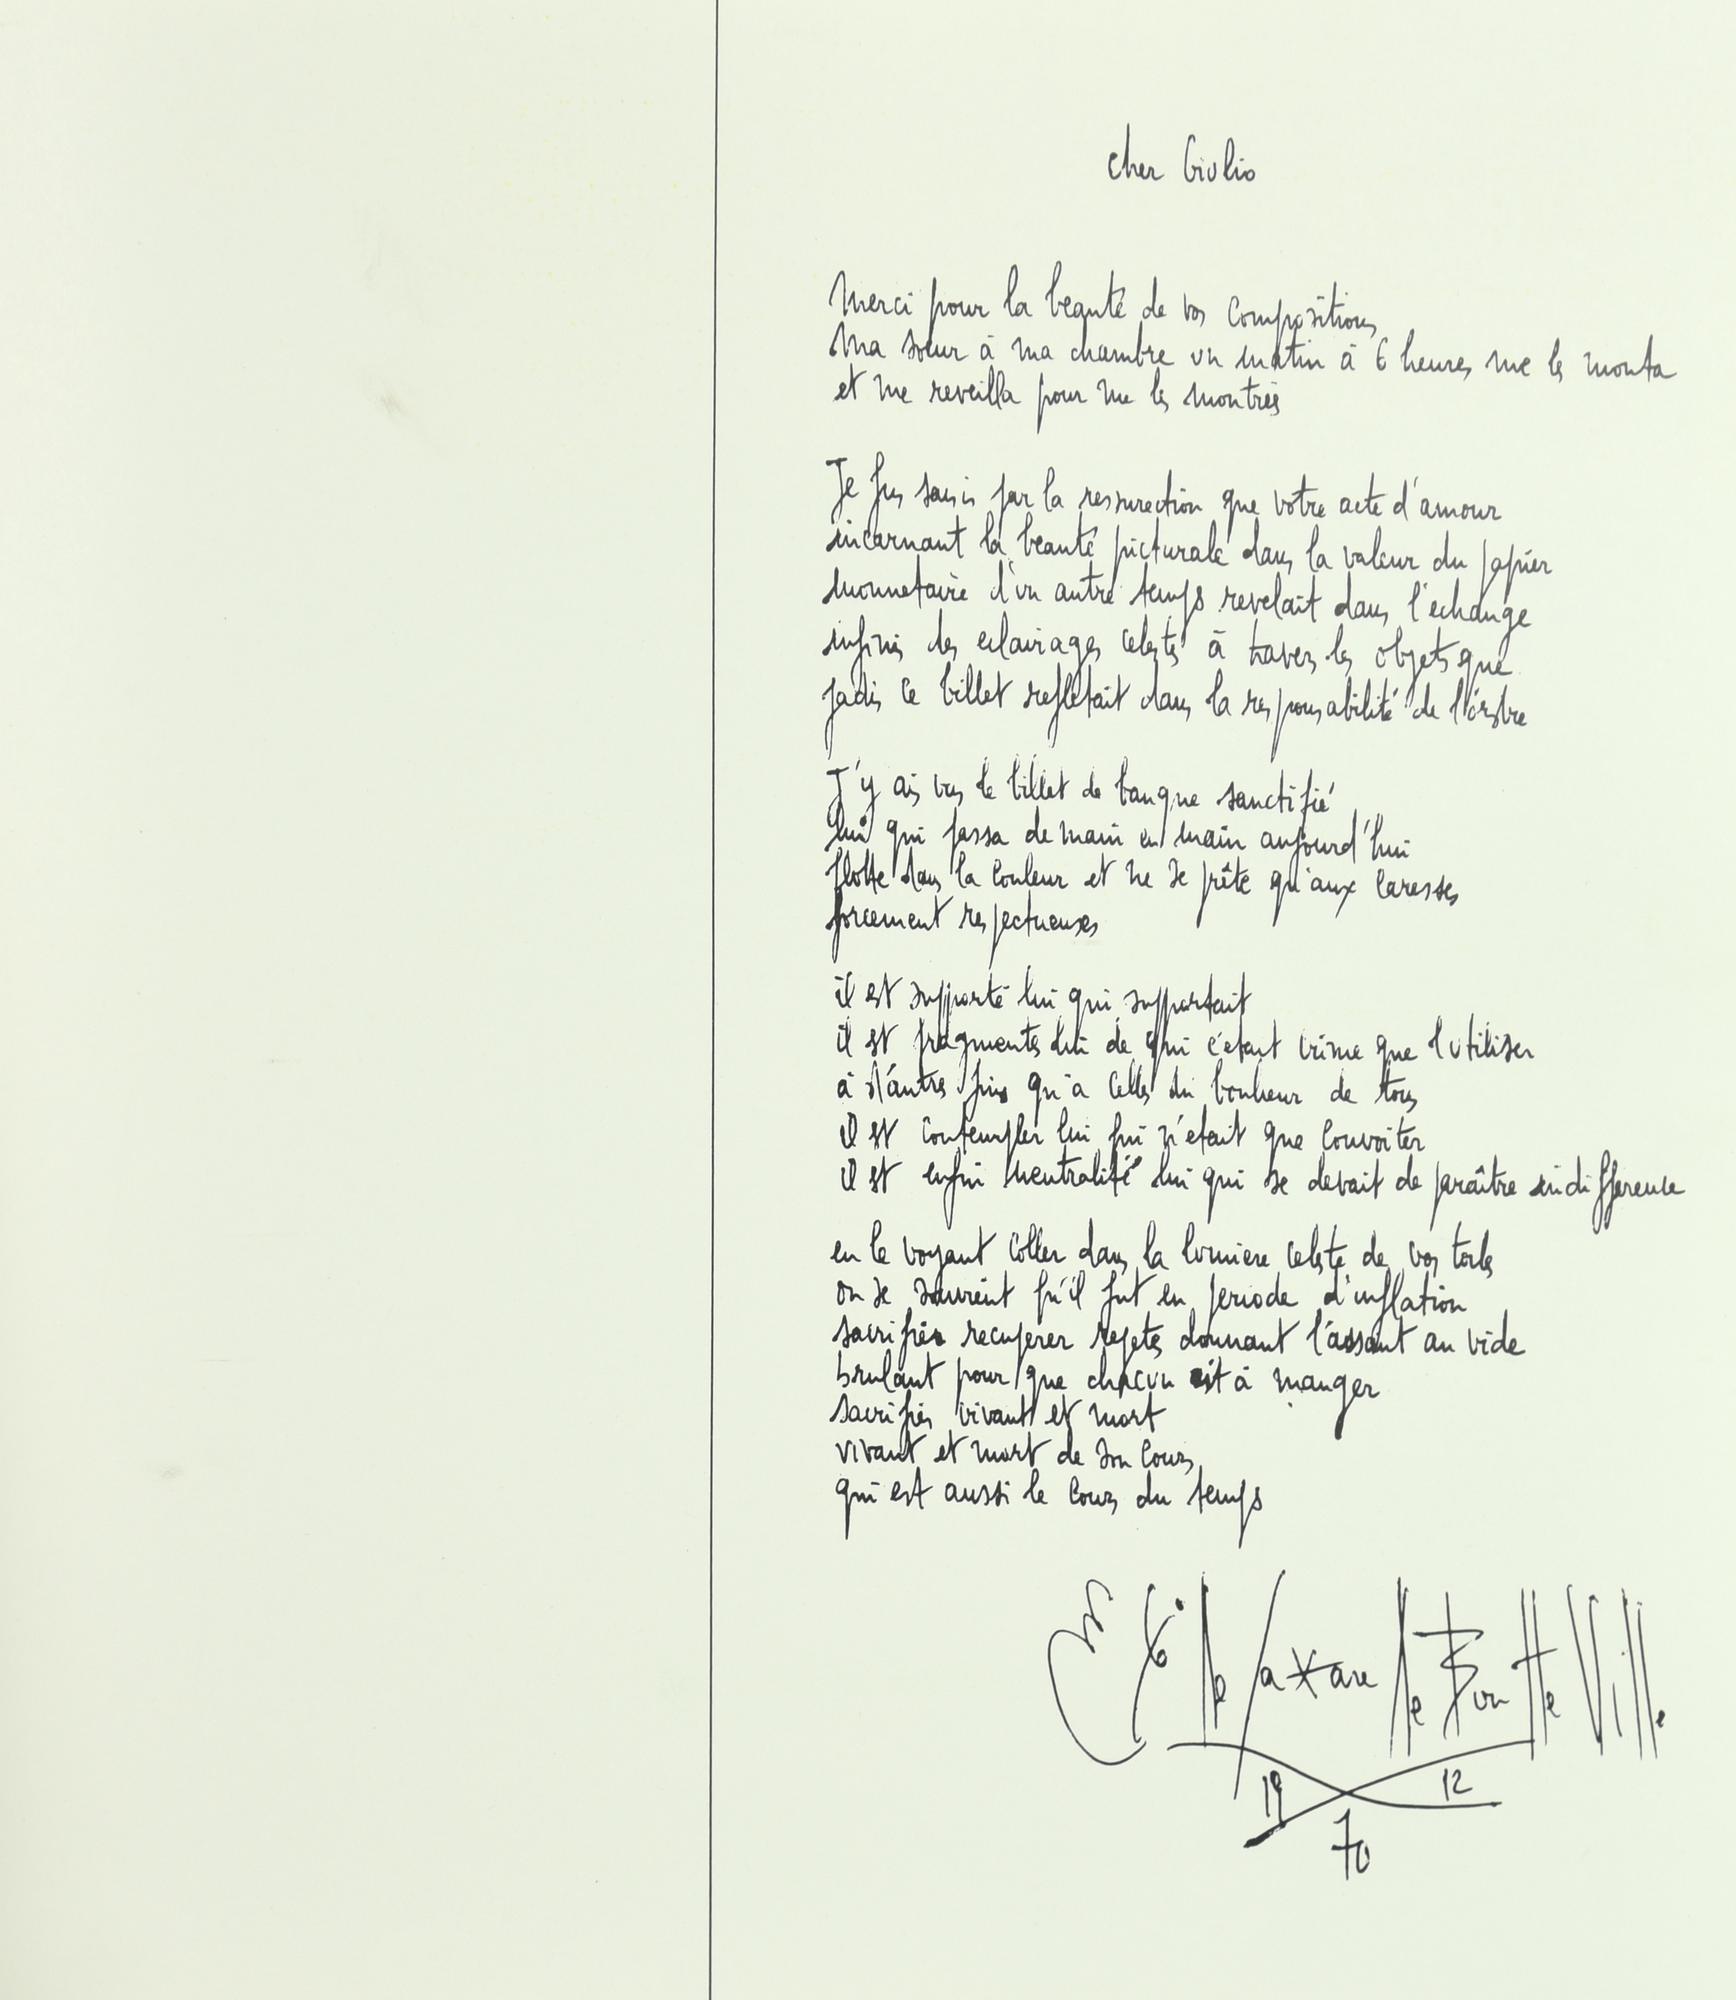 Cher Giulio
Merci pour la beauté de vos Compositions
Ma soeur à ma chambre un matin à 6 heures me les monta
et me reveilla pour me les montres
Je fus saisis par la ressurection que votre acte d'amour
incarnant la beauté picturale dans la valeur du papier
monnetaire d'un autre temps revelait dans l'echange
infinis des eclairages celeste à travers les objets que
jadis ce billet refletait dans la responsabilité de l'ordre
J'y ais vus le billet de banque sanctifié
lui qui passa de main en main aujourd'hui
flotte dans la Couleur et ne se prête qu'aux Caresses
forcement respectueuses
il est supporté lui qui supportait
il est fragmentes lui de qui c'etait crime que l'utiliser
à d'autres fins qu'à Celles du bonheur de tous
il est Contempler lui qui n'etait que Convoiter
il est enfin neutralité lui qui se devait de paraître indifference
en le voyant Coller dans la lumiere celeste de vos toiles
on se souvient qu'il fut en periode d'inflation
sacrifiés recuperer rejetes donnant l'assaut au vide
brulant pour que chacun ait à manger
sacrifies vivant et mort
vivant et mort de son Cours
qui est aussi le Cours du temps
19 12
70